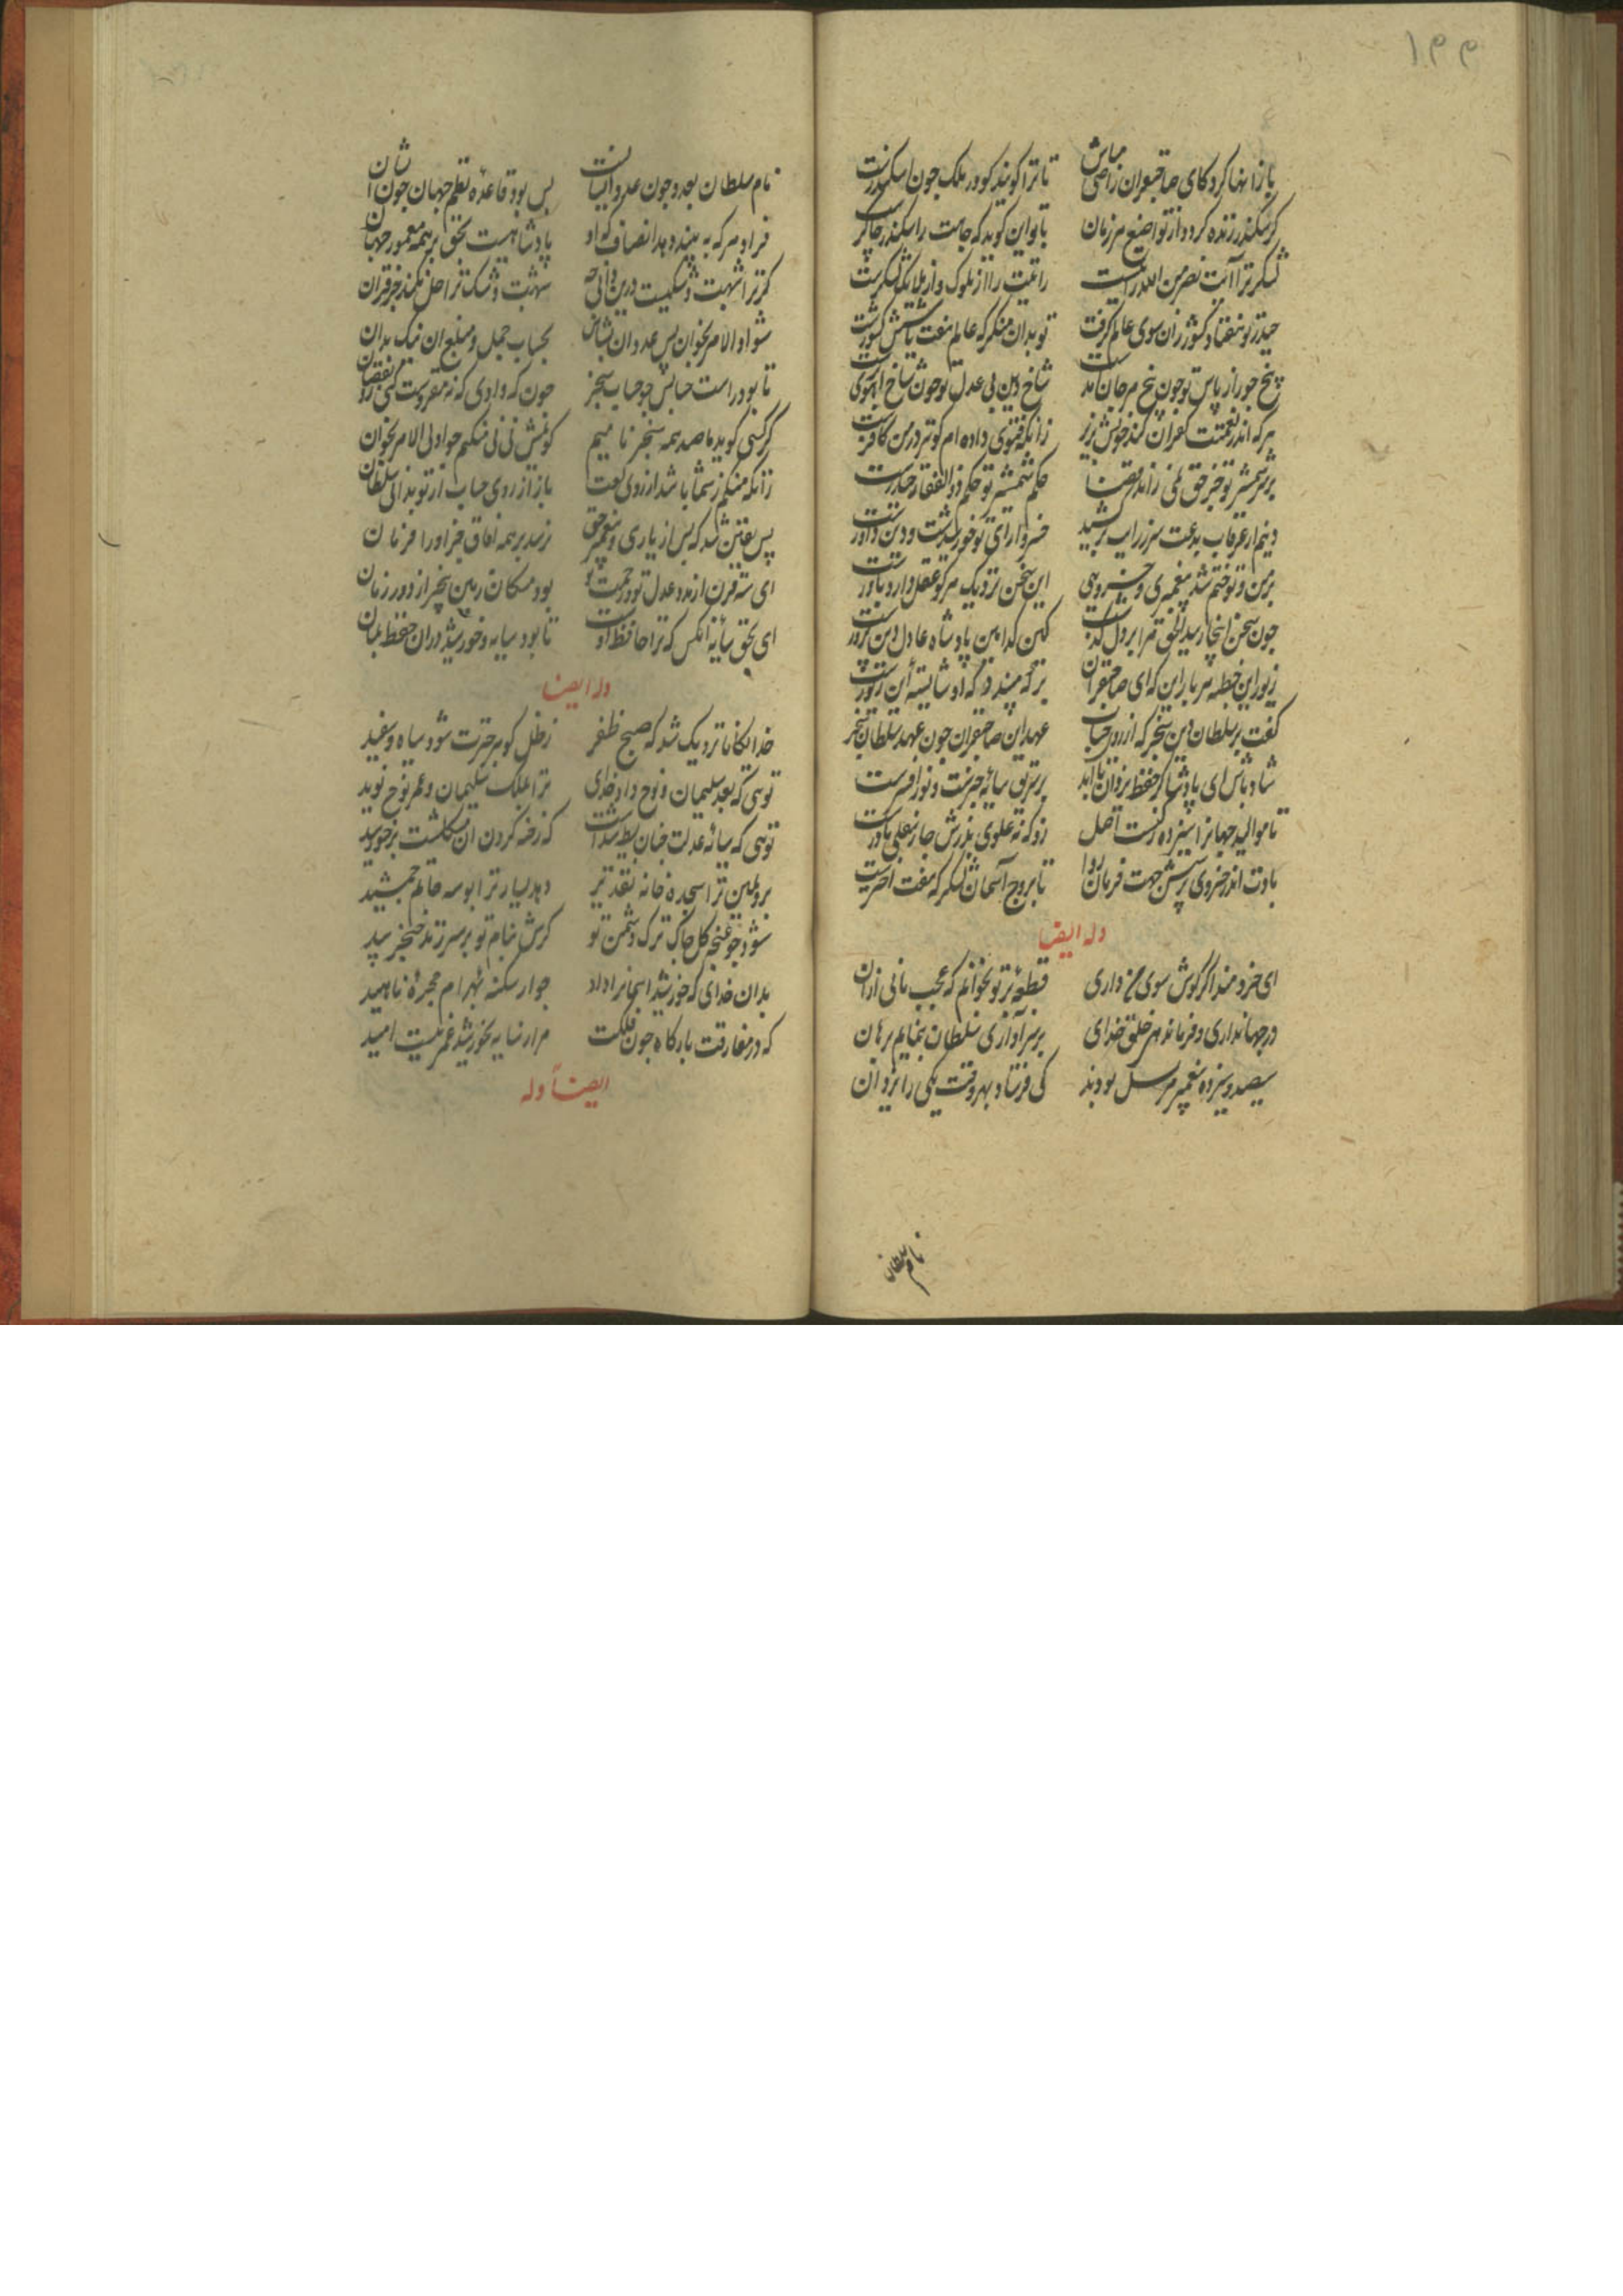 ۱۴۴
باز آنها کرد کای صاحبقران راضی مباش تا ترا گویند کو در ملک چون اسکندرست
گر سکندر زنده گردد از تواضع هر زمان با تو این گوید که جاهت را سکندر چاکرست
لشکر ترا آیت نصر من الله رایت را از ملوک و از ملایک لشکرست
حیدر تو هفتاد کشور زان سوی عالم گرفت تو بدان منگر که عالم هفت یا شش کشورست
بیخ جور از باس تو چون بیخ مرجان شاخ دین بی عدل تو چون شاخ آهوی
هر که اندر نعمتت کفران کند خونش بریز زانکه فتوی داده ام کو نیز در من کافرست
بر سر شمشیر تو جز حق نمی راند قضا حکم شمشیر تو حکم ذوالفقار حیدرست
دینم از غرقاب بدعت سر ز رایت بر کشید خسروا رای تو خورشیدست و دین
بر من و تو ختم شد پیغمبری و خسروی این سخن نزدیک هر کو عقل دارد باورست
چون سخن اینجا رسید الحق مرا بر دل گذشت کین کدامین پادشاه عادل دین پرورست
زیور این خطبه هر بار این که ای صاحبقران بر که میبندد که او شایسته این زیورست
گفت بر سلطان دین سنجر که از روی حساب عهد این صاحبقران چون عهد سلطان سنجرست
شاد باش ای پادشا کز حفظ یزدان تا ابد بر سر تو سایه چترست و نور افسرست
تا موالید جهان را سیزده رکنست اصل زو که نه علوی پدرش چار سفلی مادرست
بادت اندر خسروی بر شش جهت فرمان روا تا بروج آسمان لشکر که هفت اخترست
وله ایضا
ای خردمند اگر گوش سوی من داری قطعه بر تو بخوانم که عجب مانی ازان
در جهانداری و فرماندهی خلق خدای بر سزاواری سلطان بنمایم برهان
سیصد و سیزده پیغمبر مرسل بودند کی فرستاد بهر وقت یکی را یزدان
نام سلطان
نام سلطان بعدد چون عدد انبیاست بس بود قاعده نظم جهان چون ایشان
فر او هر که ببیند بدهد انصاف که او پادشاهیست بحق بر همه معمور جهان
گر ترا شبهت و شکیست درین شبهت و شکت ز اصل نکند جز قرآن
شو اولوالامر بخوان پس عدد آن بشناس بحساب جمل و مبلغ آن نیک بدان
تا بود راست حسابش چو حساب سنجر چون که وادی که نه مقروست کنی زو نقصان
گر کسی گوید ما صد همه سنجر نامیم گویمش نی نی منکم چو اولی الامر بخوان
زانکه منکم ز شما باشد از روی لغت باز از روی حساب از تو بدانی سلطان
پس یقین شد که پس از باری و پیغمبر حق نرسد بر همه آفاق جز او را فرمان
ای سه قرن از مدد عدل تو و رحمت تو بوده سکان زمین بیخبر از دور زمان
ای بحق سایه آنکس که ترا حافظ اوست تا بود سایه و خورشید در آن حفظ بمان
وله ایضا
خدایگانا نزدیک شد که صبح ظفر ز ظل گوهر چترت شود سیاه و سفید
تویی که بعد سلیمان و نوح داد خدای ترا بملک سلیمان و عمر نوح نوید
تویی که سایه عدلت چنان بسیط شدست که رخنه کردن آن مشکلست بر خورشید
برد یمین ترا سجده خامه تقدیر دهد یسار ترا بوسه خاتم جمشید
شود چو غنچه گل چاک ترک دشمن تو گرش بنام تو بر سر زنند خنجر بید
بدان خدای که خورشید آسمان را داد جوار سکنه بهرام و حجره ناهید
که در مفارقت بارگاه چون فلکت مرا ز سایه بخورشید عمر نیست امید
ایضاً وله